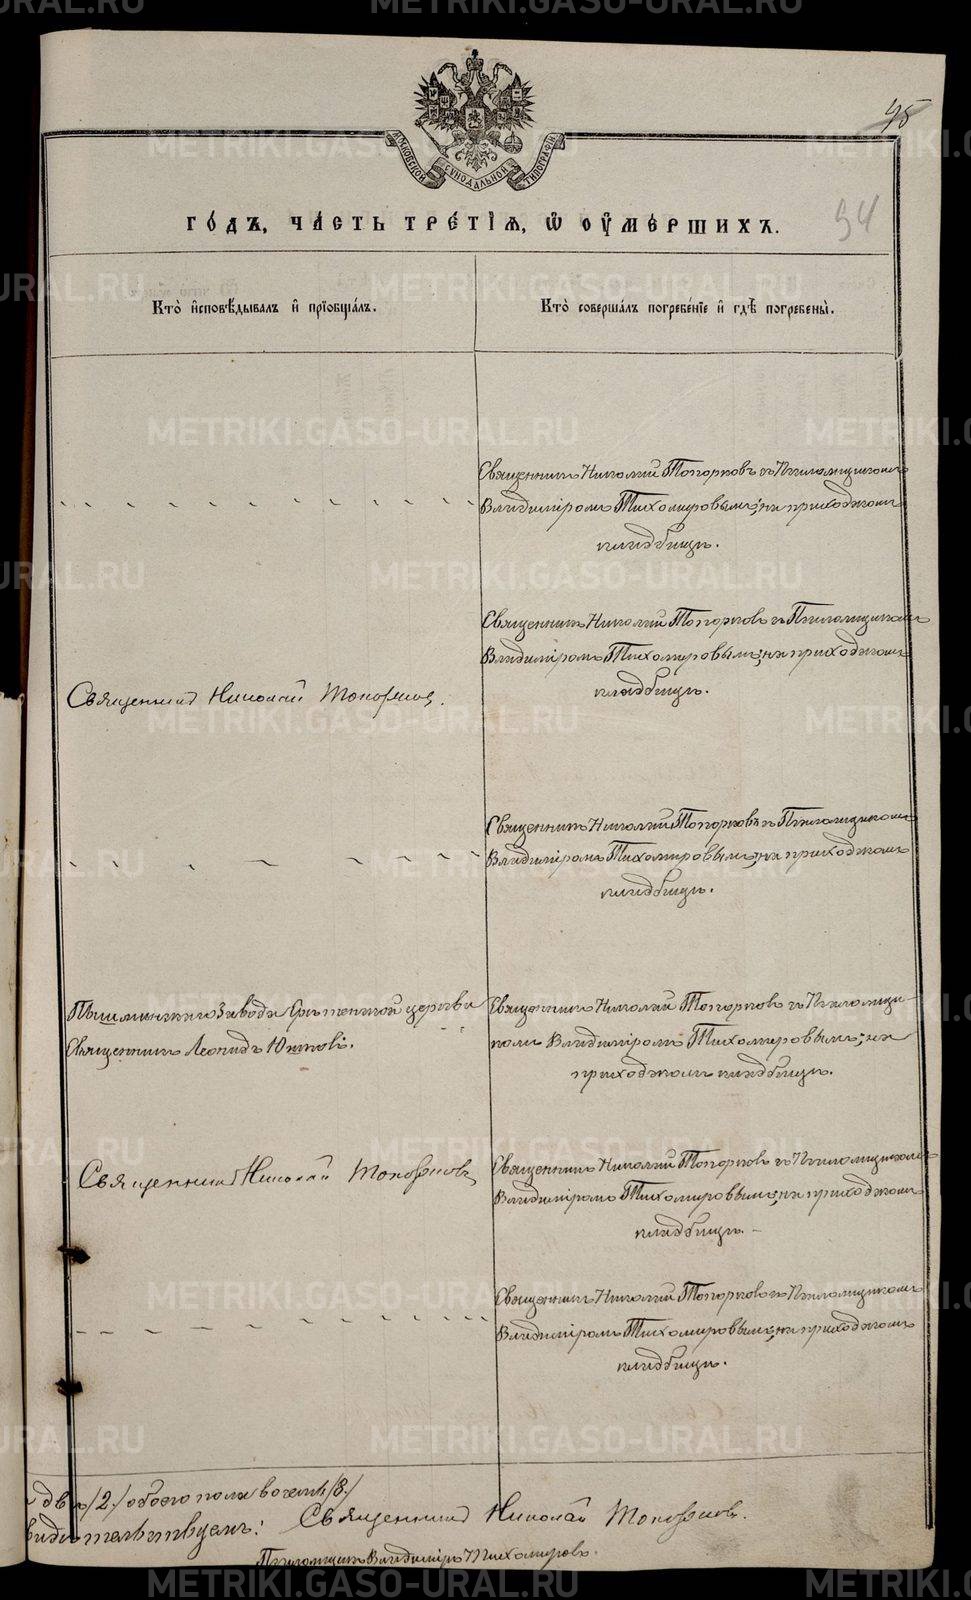 METRIKI.GASO-URAL.RU
95
МОСКОВСКОЙ СѴНОДАЛЬНОЙ ТИПОГРАФІИ
94
ГО́ДЪ, ЧА́СТЬ ТРЕ́ТІѦ, Ѽ ОУ҆МЕ́РШИХЪ.
Кто̀ и҆сповѣ́дывалъ и҆ прїобща́лъ.
Кто̀ соверша́лъ погребе́нїе и҆ гдѣ̀ погребены̀.
Священникъ Николай Топорковъ съ Псаломщикомъ
Владиміромъ Тихомировымъ; на приходскомъ
кладбищѣ.
Священникъ Николай Топорковъ съ Псаломщикомъ
Владиміромъ Тихомировымъ; на приходскомъ
кладбищѣ.
Священникъ Николай Топорковъ.
Священникъ Николай Топорковъ съ Псаломщикомъ
Владиміромъ Тихомировымъ; на приходскомъ
кладбищѣ.
Пышминскаго Завода Срѣтенской церкви
Священникъ Леонидъ
Священникъ Николай Топорковъ съ Псаломщи-
комъ Владиміромъ Тихомировымъ; на
приходскомъ кладбищѣ.
Священникъ Николай Топорковъ
Священникъ Николай Топорковъ съ Псаломщикомъ
Владиміромъ Тихомировымъ; на приходскомъ
кладбищѣ.
Священникъ Николай Топорковъ съ Псаломщикомъ
Владиміромъ Тихомировымъ; на приходскомъ
кладбищѣ.
два /2./ обоего пола восемь /8./
Священникъ Николай Топорковъ.
Псаломщикъ Владиміръ Тихомировъ.